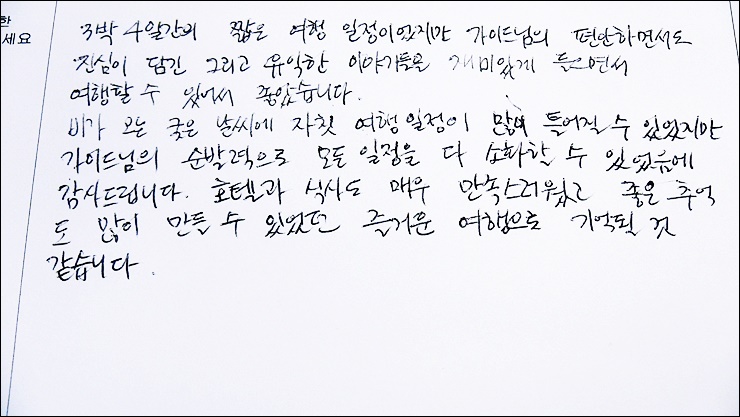 한
세요
3박 4일간의 짧은 여행 일정이었지만 가이드님의 편안하면서도
진심이 담긴 그리고 유익한 이야기들을 재미있게 들으면서
여행할 수 있어서 좋았습니다.
비가 오는 궂은 날씨에 자칫 여행일정이 많이 틀어질 수 있었지만
가이드님의 순발력으로 모든 일정을 다 소화할 수 있었음에
감사드립니다. 호텔과 식사도 매우 만족스러웠고 좋은 추억
도 많이 만들 수 있었던 즐거운 여행으로 기억될 것
같습니다.